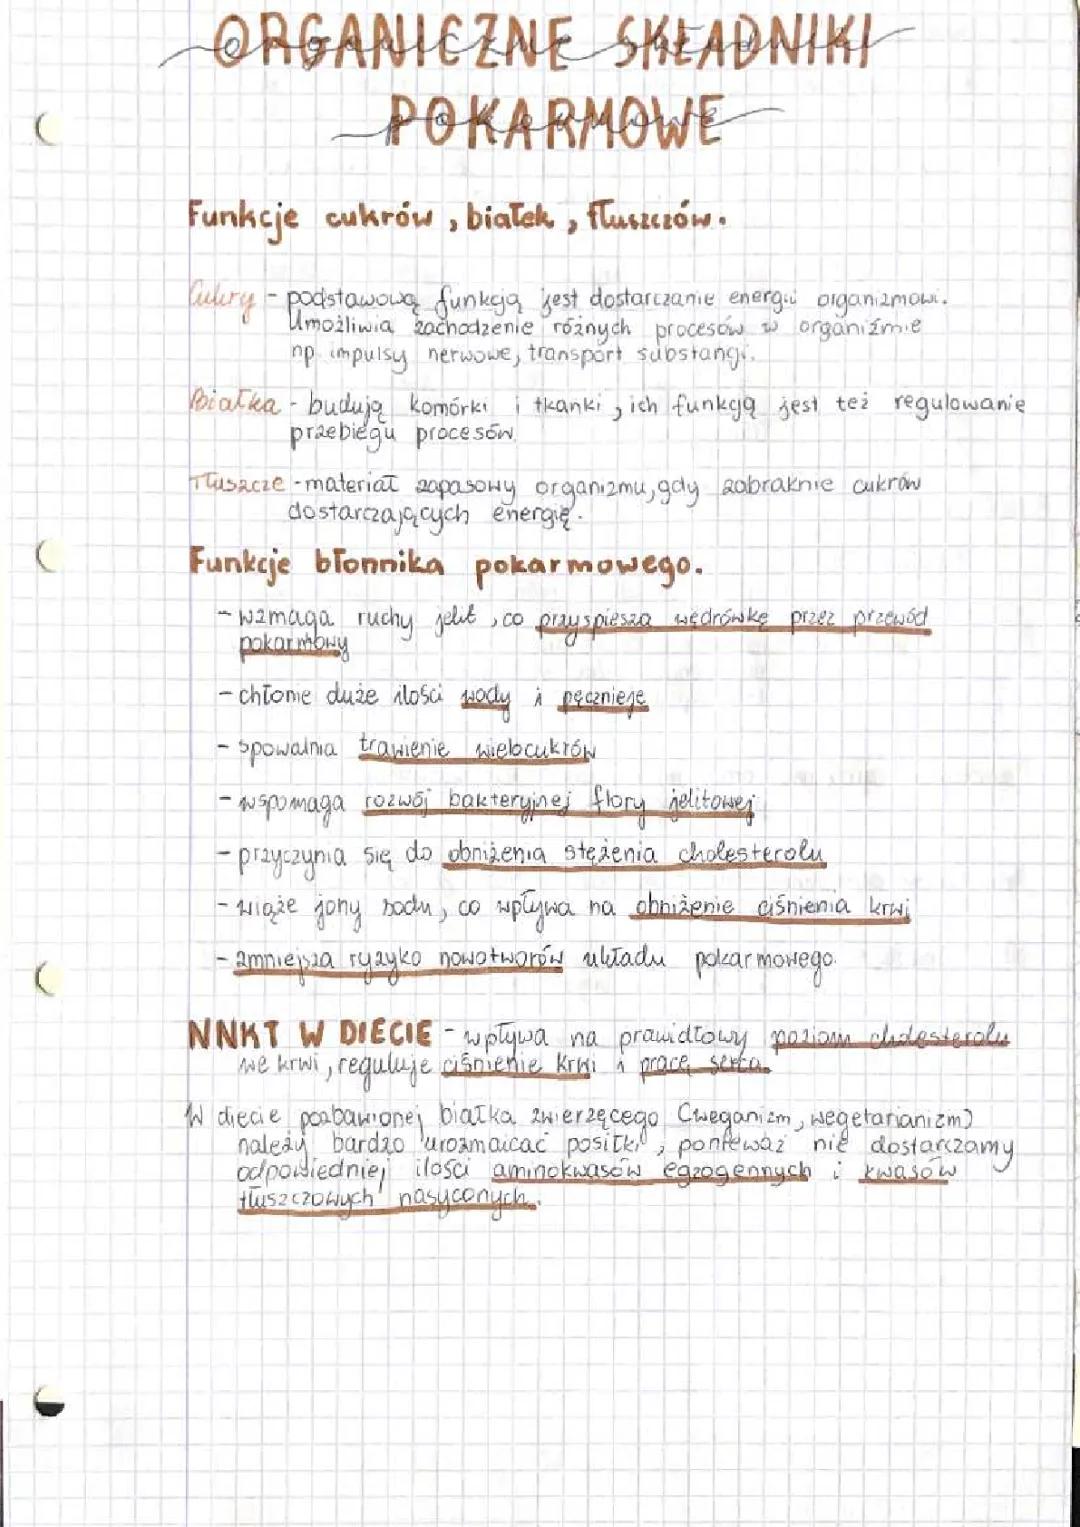 ORGANICZNE SKŁADNIKI
POKARMOWE
Funkcje cukrów, białek, tłuszczów.
Cukry - podstawową funkcją jest dostarczanie energii organizmowi.
Umożliwia zachodzenie różnych procesów w organiźmie
np. impulsy nerwowe, transport substancji.
Białka - budują komórki i tkanki, ich funkcją jest też regulowanie
przebiegu procesów
Tłuszcze - materiał zapasowy organizmu, gdy zabraknie cukrów
dostarczających energię.
Funkcje błonnika pokarmowego.
- wzmaga ruchy jelit, co przyspiesza wędrówkę przez przewód
pokarmowy
- chłonie duże ilości wody i pęcznieje
- spowalnia trawienie wielocukrów
- wspomaga rozwój bakteryjnej flory jelitowej
- przyczynia się do obniżenia stężenia cholesterolu
- wiąże jony sodu, co wpływa na obniżenie ciśnienia krwi
- zmniejsza ryzyko nowotworów układu pokarmowego.
NNKT W DIECIE - wpływa na prawidłowy poziom cholesterolu
we krwi, reguluje ciśnienie krwi i pracę serca.
W diecie pozbawionej białka zwierzęcego (weganizm, wegetarianizm)
należy bardzo urozmaicać posiłki, ponieważ nie dostarczamy
odpowiedniej ilości aminokwasów egzogennych i kwasów
tłuszczowych nasyconych.